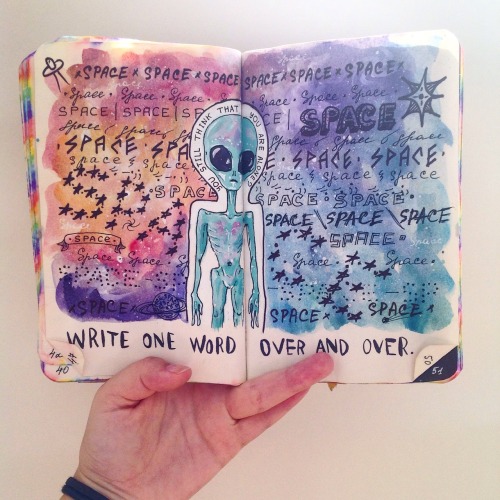 ×SPACE × SPACE × SPACE SPACE × SPACE × SPACE ×
Space · Space · Space
SPACE | SPACE | SP
SPACE
Space Space
SPACE · SPA
SPACE · SPACE ·
space & space
space & space & space
YOU STILL THINK THAT YOU ARE ALONE?
SPACE
SPACE · SPACE
SPACE \ SPACE \ SPACE
· SPACE ·
SPACE
Space Space
Space Space
×SPACE×
SPACE × SPACE ×
WRITE ONE WORD OVER AND OVER.
40
50
51